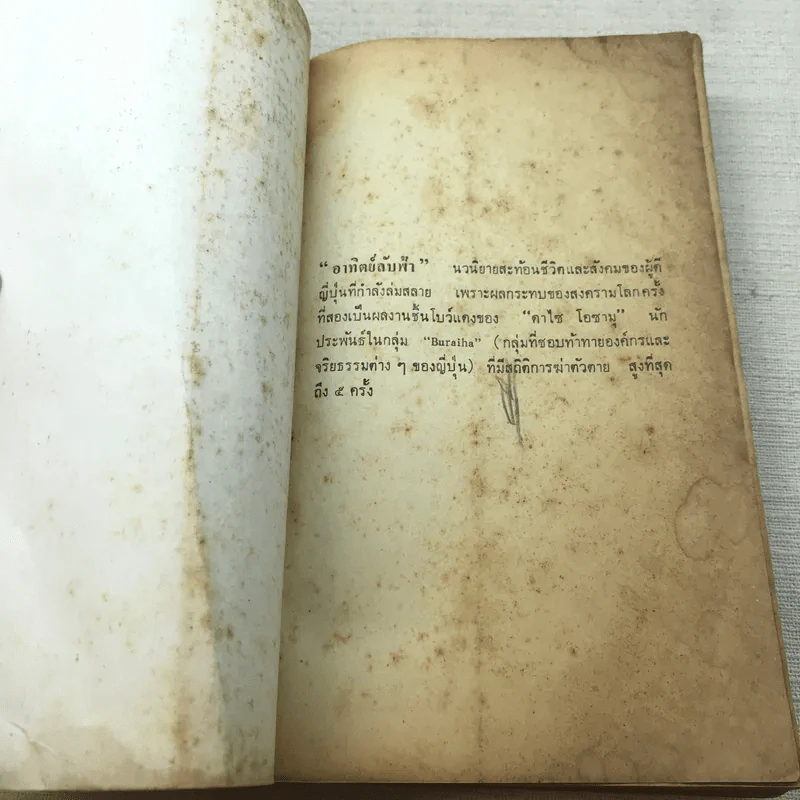 “ อาทิตย์ลับฟ้า ” นวนิยายสะท้อนชีวิตและสังคมของผู้ดี
ญี่ปุ่นที่กำลังล่มสลาย เพราะผลกระทบของสงครามโลกครั้ง
ที่สองเป็นผลงานชิ้นโบว์แดงของ “ดาไซ โอซามุ” นัก
ประพันธ์ในกลุ่ม “Buraiha” (กลุ่มที่ชอบท้าทายองค์กรและ
จริยธรรมต่าง ๆ ของญี่ปุ่น) ที่มีสถิติการฆ่าตัวตาย สูงที่สุด
ถึง ๕ ครั้ง